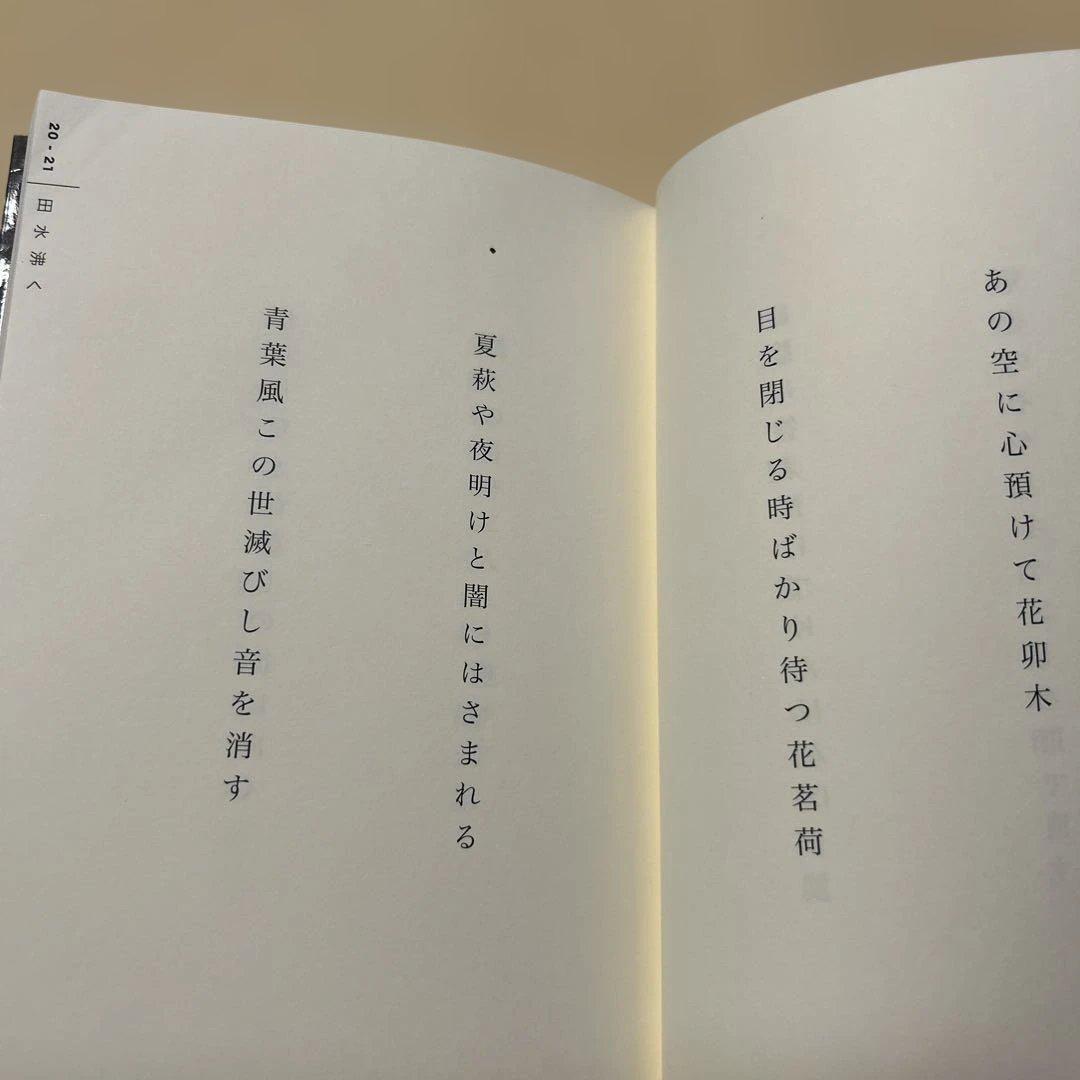 あの空に心預けて花卯木
目を閉じる時ばかり待つ花茗荷
夏萩や夜明けと闇にはさまれる
青葉風この世滅びし音を消す
20 - 21
田水沸く